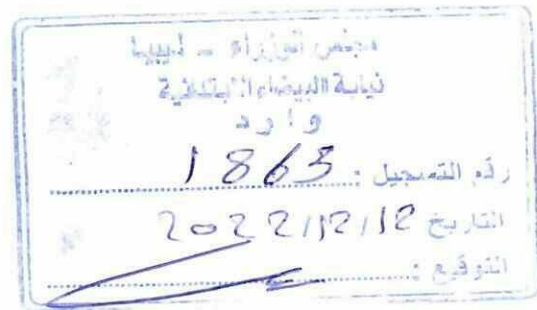 مجلس الوزراء - ليبيا
نيابة البيضاء الابتدائية
وارد
رقم التسجيل : 1863
التاريخ 2022/12/12
التوقيع :